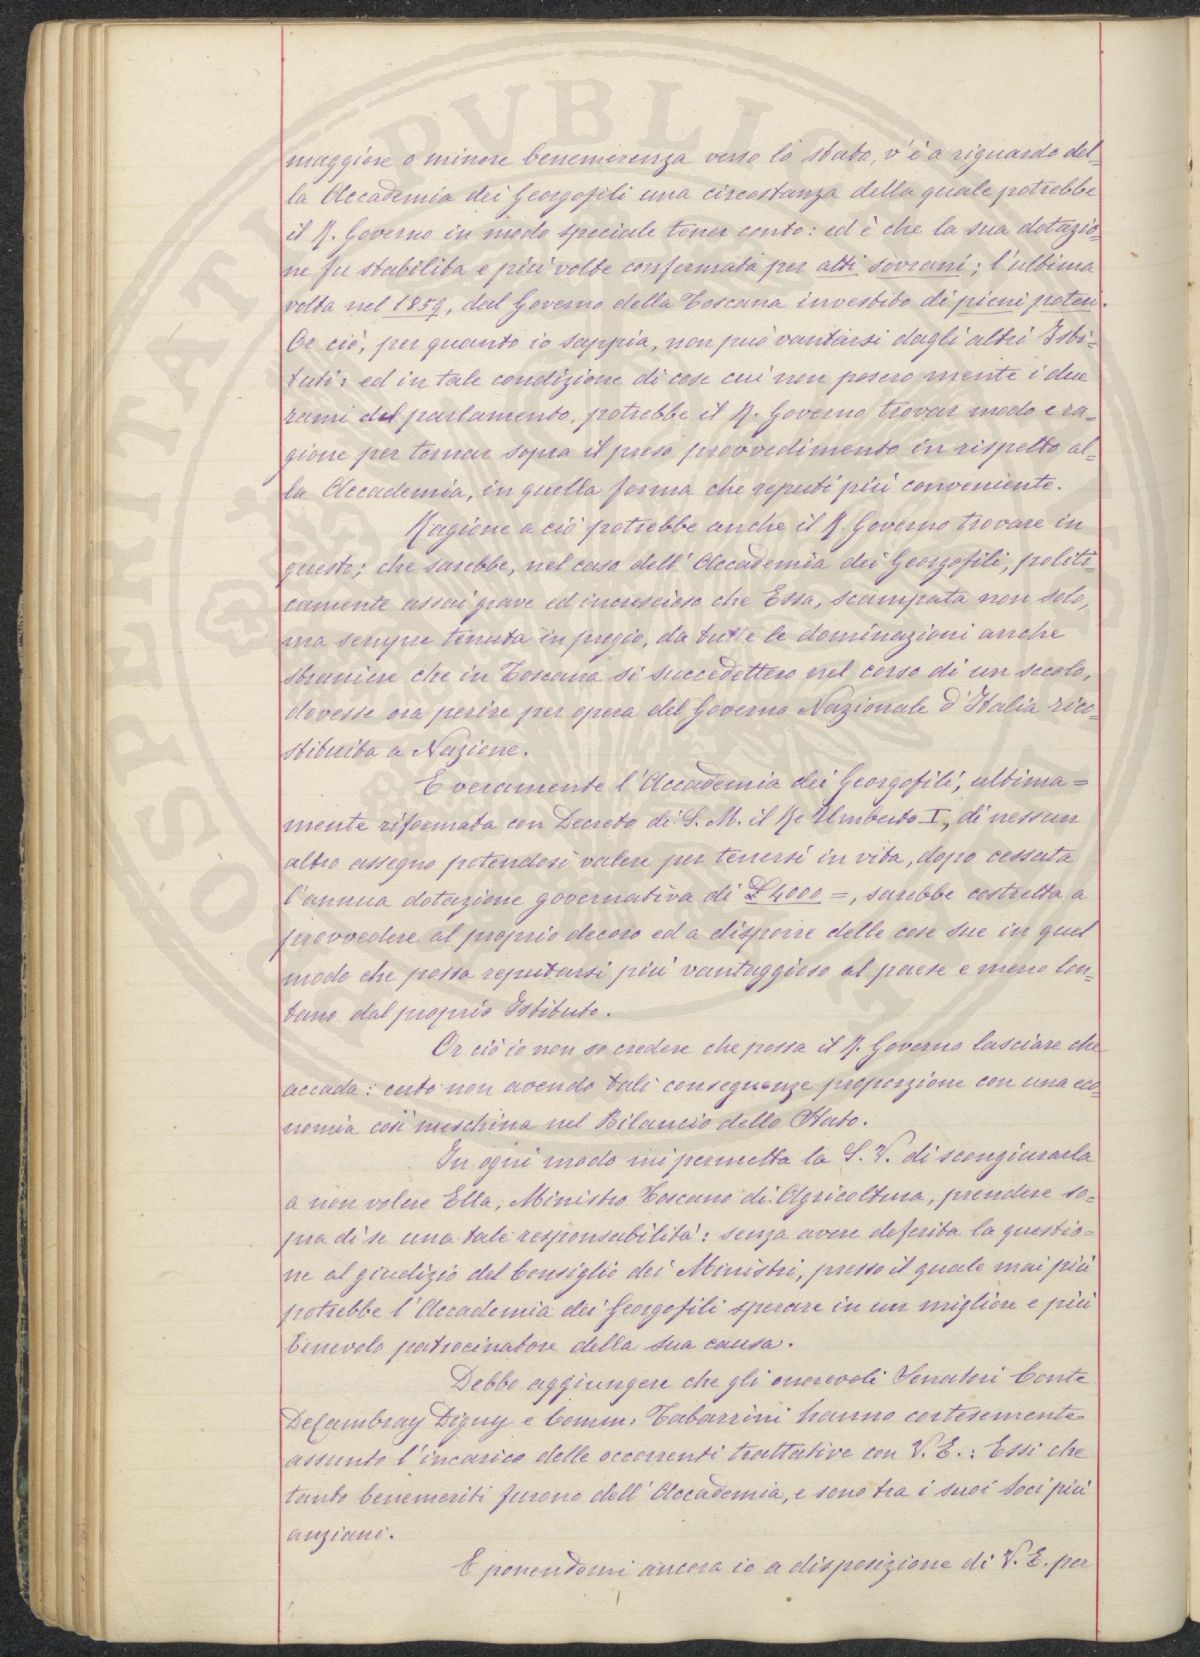 maggiore o minore benemerenza verso lo stato, v'è a riguardo del=
la Accademia dei Georgofili una circostanza della quale potrebbe
il R. Governo in modo speciale tener conto: ed è che la sua dotazio=
ne fu stabilita e più volte confermata per atti sovrani; l'ultima
volta nel 1859, dal Governo della Toscana investito di pieni poteri.
Or ciò, per quanto io sappia, non può vantarsi dagli altri Isti=
tuti: ed in tale condizione di cose cui non posero mente i due
rami del parlamento, potrebbe il R. Governo trovar modo e ra=
gione per tornar sopra il preso provvedimento in rispetto al=
la Accademia, in quella forma che reputi più conveniente.
Ragione a ciò potrebbe anche il R. Governo trovare in
questo; che sarebbe, nel caso dell'Accademia dei Georgofili, politi=
camente assai grave ed increscioso che Essa, scampata non solo,
ma sempre tenuta in pregio, da tutte le dominazioni anche
straniere che in Toscana si succedettero nel corso di un secolo,
dovesse ora perire per opera del Governo Nazionale d'Italia rico=
stituita a Nazione.
E veramente l'Accademia dei Georgofili, ultima=
mente riformata con Decreto di S. M. il Re Umberto I, di nessun
altro assegno potendosi valere per tenersi in vita, dopo cessata
l'annua dotazione governativa di £ 4000 =, sarebbe costretta a
provvedere al proprio decoro ed a disporre delle cose sue in quel
modo che possa reputarsi più vantaggioso al paese e meno lon=
tano dal proprio Istituto.
Or ciò io non so credere che possa il R. Governo lasciare che
accada: certo non avendo tali conseguenze proporzione con una eco=
nomia così meschina nel Bilancio dello Stato.
In ogni modo mi permetta la S. V. di scongiurarla
a non volere Ella, Ministro Toscano di Agricoltura, prendere so=
pra di se una tale responsabilità: senza avere deferita la questio=
ne al giudizio del Consiglio dei Ministri, presso il quale mai più
potrebbe l'Accademia dei Georgofili sperare in un migliore e più
benevolo patrocinatore della sua causa.
Debbo aggiungere che gli onorevoli Senatori Conte
De Cambray Digny e Comm. Tabarrini hanno cortesemente
assunto l'incarico delle occorrenti trattative con V. E.: Essi che
tanto benemeriti furono dell'Accademia, e sono tra i suoi Soci più
anziani.
E ponendomi ancora io a disposizione di V. E. per